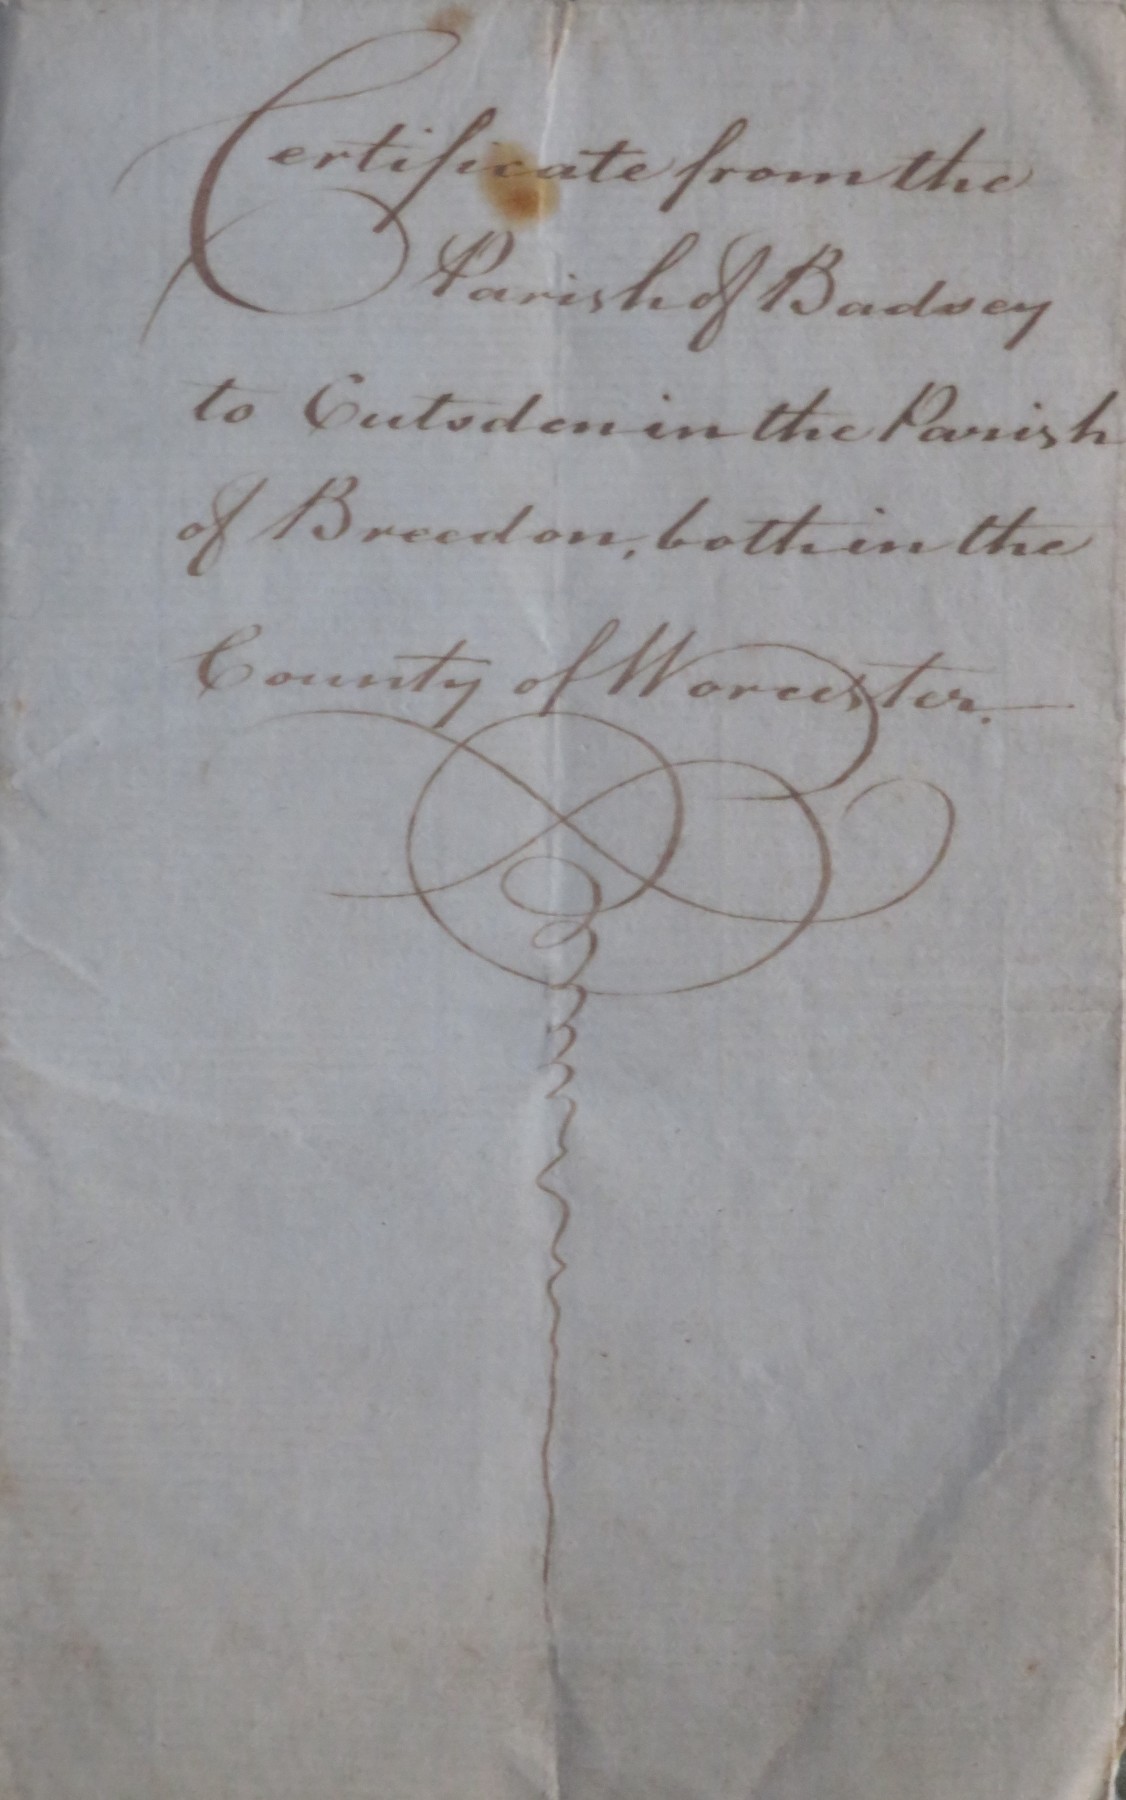 Certificate from the
Parish of Badsey
to Cutsden in the Parish
of Breedon, both in the
County of Worcester.